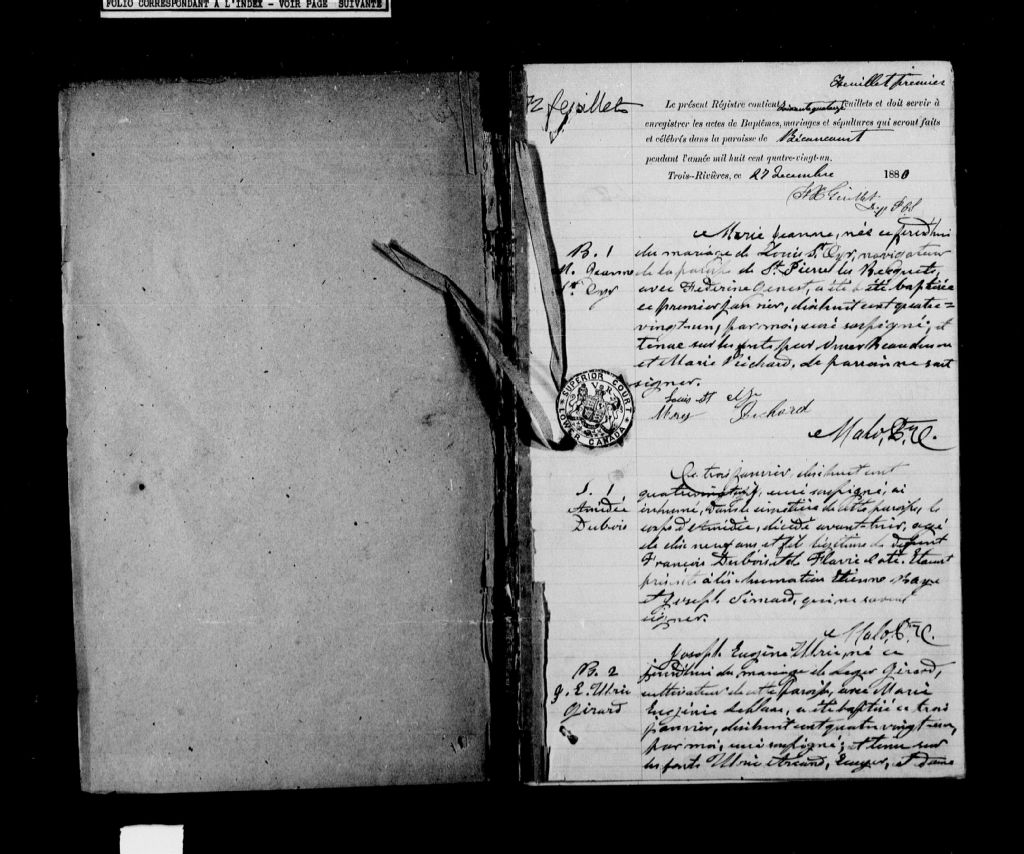 FOLIO CORRESPONDANT A L'INDEX - VOIR PAGE SUIVANTE
feuillet premier
72 feuillets
Le présent Régistre contient soixante quatorze feuillets et doit servir à
enregistrer les actes de Baptêmes, mariages et sépultures qui seront faits
et célébrés dans la paroisse de Bécancourt
pendant l'année mil huit cent quatre-vingt-un.
Trois-Rivières, ce 27 decembre 1880
Marie Jeanne, née ce jourd'hui
B. 1
M. Jeanne
St Cyr
du mariage de Louis St Cyr, navigateur
de la paroisse de St Pierre les Becquets,
avec Genest, a été baptisée
ce premier janvier, dixhuit cent quatre-
vingt-un, par moi, curé soussigné; et
tenue sur les fonts par Omer Beaudoin
et Marie Richard, le parrain ne sait
signer.
SUPERIOR COURT
LOWER CANADA
Louis St
Richard
Malo, Ptre C.
Ce trois janvier, dixhuit cent
S. 1
Amédée
Dubois
quatrevingt-un, curé soussigné, ai
inhumé, dans le cimetière de cette paroisse, le
corps d'Amédée, décédé avant-hier, agé
de dix neuf ans et fils légitime de défunt
François Dubois et de Flavie Coté. Etaient
présents à l'inhumation Etienne
et Joseph Simard, qui ne savent
signer.
Malo, Ptre C.
Joseph Eugène Ulric, né ce
B. 2
J. E. Ulric
Girard
jourd'hui du mariage de Léger Girard,
cultivateur de cette paroisse, avec Marie
Eugénie Leblanc, a été baptisé ce trois
janvier, dixhuit cent quatre vingt-un,
par moi, curé soussigné; et tenu sur
les fonts Ulric Arcand, et dame